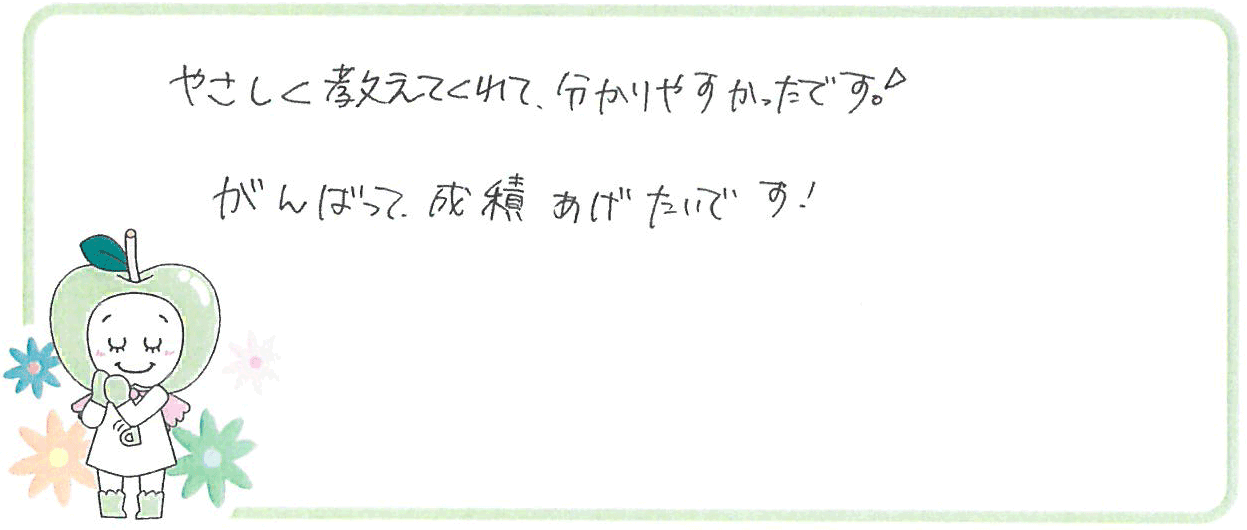 やさしく教えてくれて、分かりやすかったです。
がんばって、成積あげたいです!